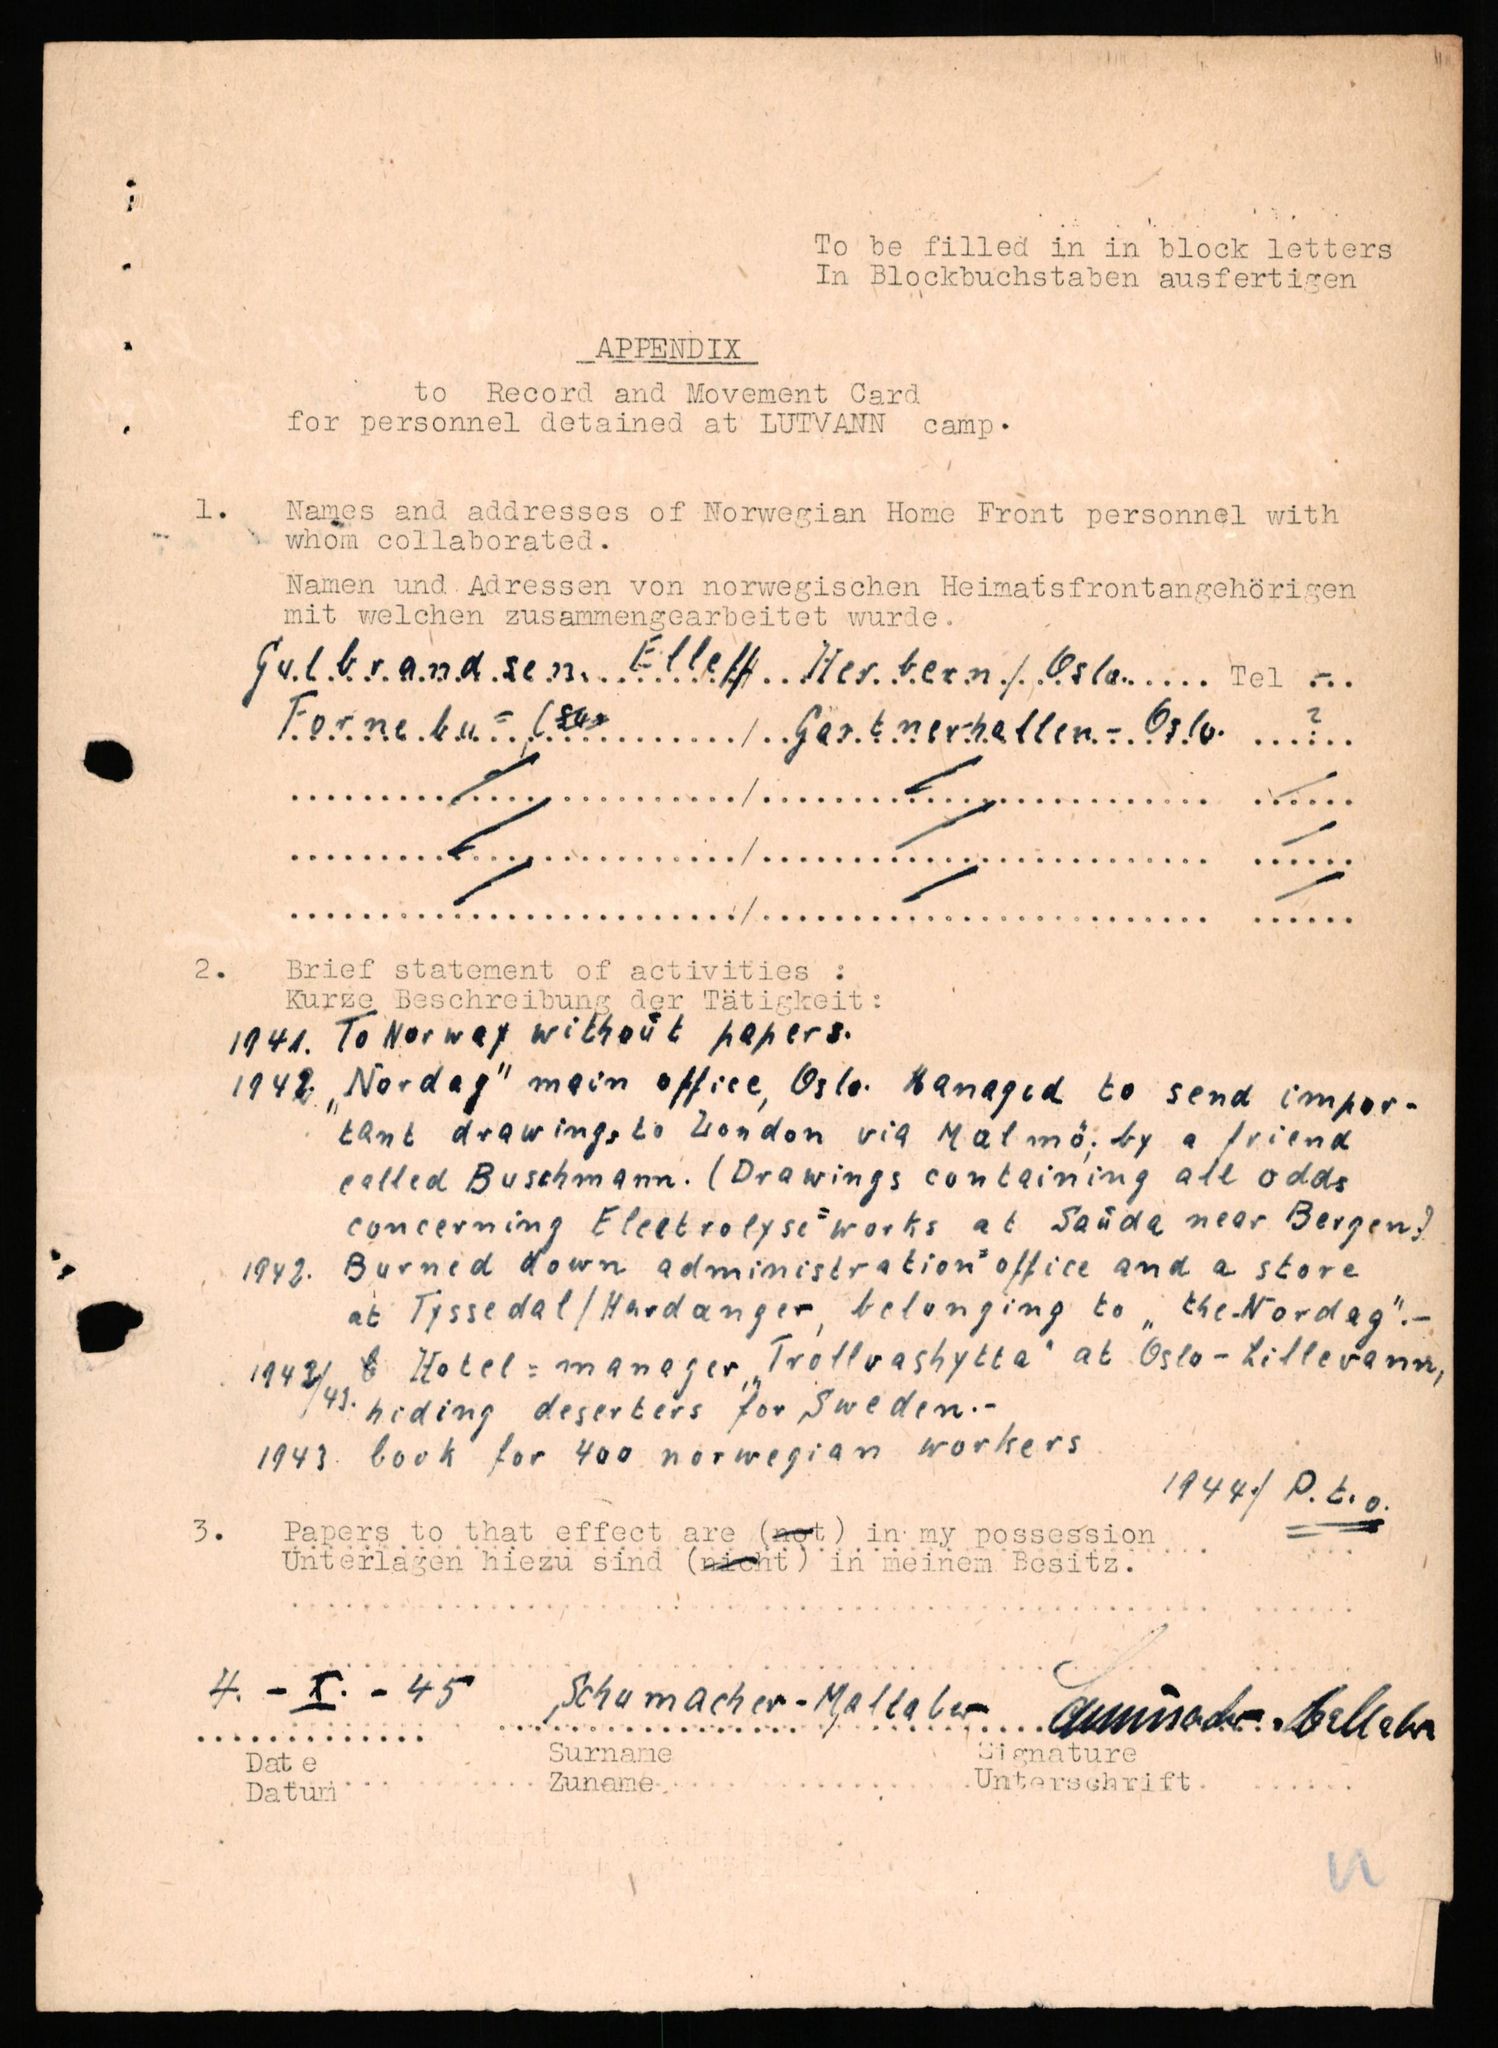 To be filled in in block letters
In Blockbuchstaben ausfertigen
APPENDIX
to Record and Movement Card
for personnel detained at LUTVANN camp.
1. Names and addresses of Norwegian Home Front personnel with
whom collaborated.
Namen und Adressen von norwegischen Heimatsfrontangehörigen
mit welchen zusammengearbeitet wurde.
Gulbrandsen. Elleff Herbern / Oslo. Tel -
Fornebu= / Gartnerhallen - Oslo. ?
2. Brief statement of activities :
Kurze Beschreibung der Tätigkeit:
1941. To Norway without papers.
1942. „Nordag" main office, Oslo. Managed to send impor-
tant drawings to London via Malmö, by a friend
called Buschmann. (Drawings containing all odds
concerning Electrolyse=works at Sauda near Bergen)
1942. Burned down administration=office and a store
at Tyssedal/Hardanger, belonging to „the Nordag".-
1942/43. Hotel=manager, „Trollvashytta" at Oslo-Lillevann,
hiding deserters for Sweden.-
1943. book for 400 norwegian workers
1944./ P.t.o.
3. Papers to that effect are (not) in my possession
Unterlagen hiezu sind (nicht) in meinem Besitz.
4. - X. - 45 Schumacher-Maltaber
Date Surname Signature
Datum Zuname Unterschrift